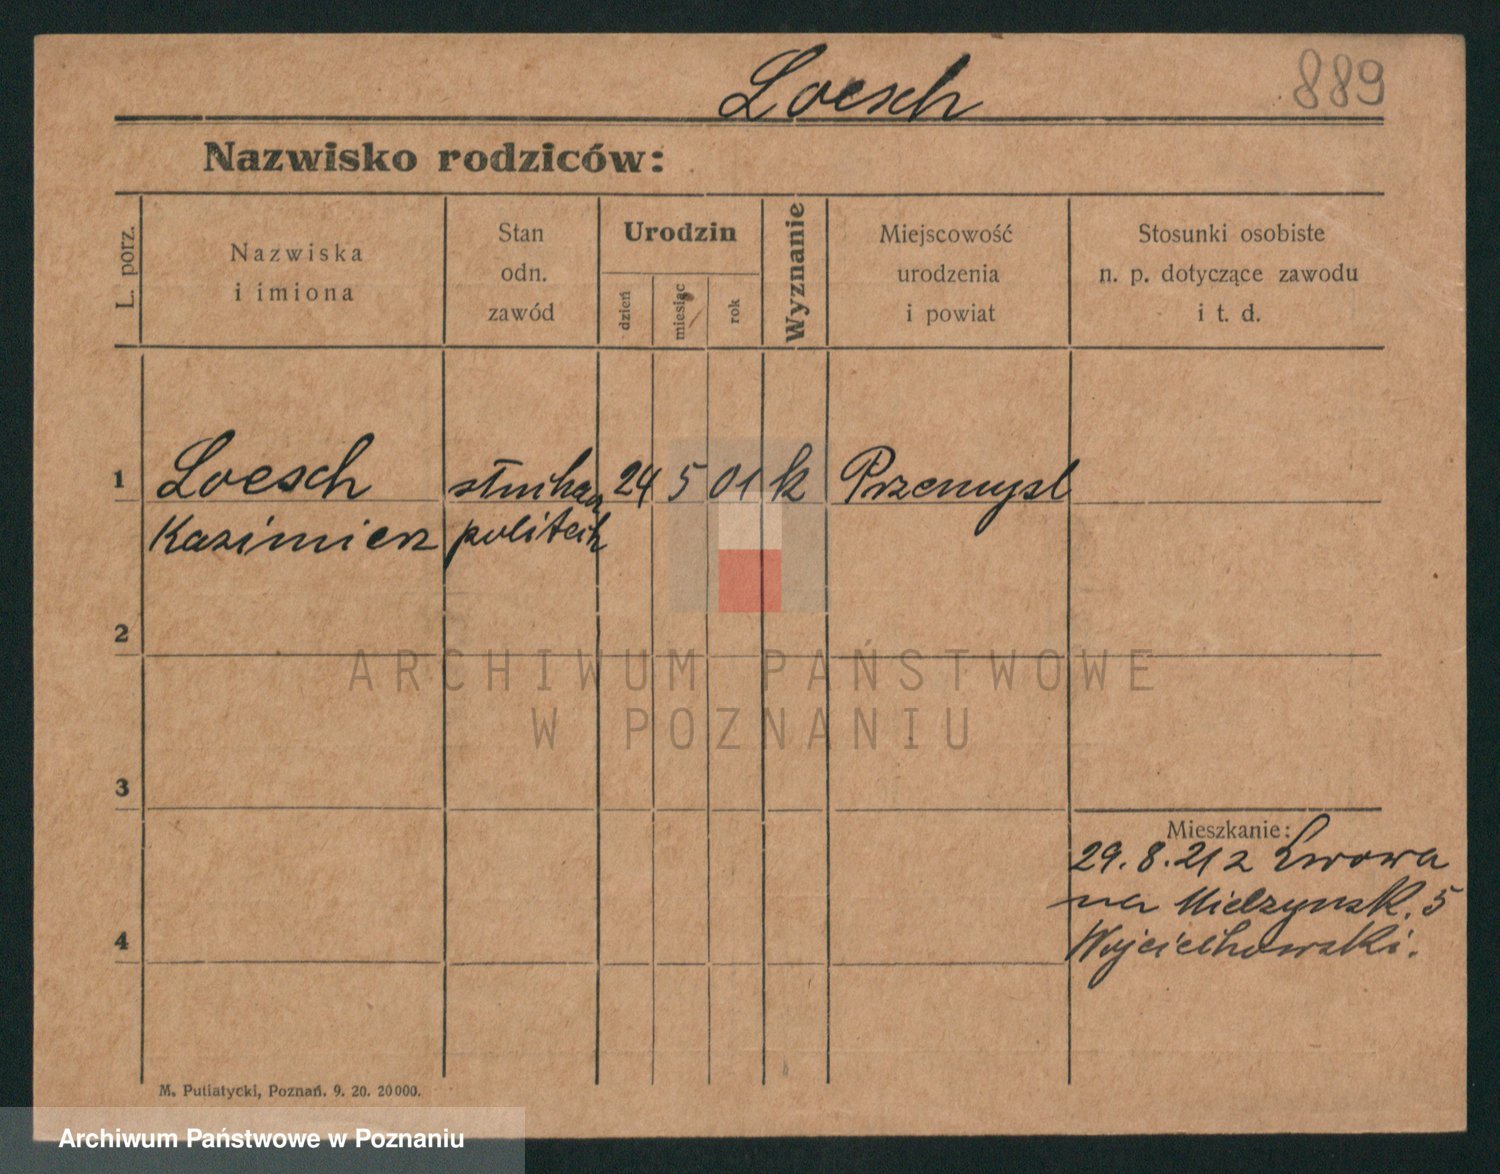 Loesch
889
Nazwisko rodziców:
L. porz.
Nazwiska
i imiona
Stan
odn.
zawód
Urodzin
dzień
miesiąc
rok
Wyznanie
Miejscowość
urodzenia
i powiat
Stosunki osobiste
n. p. dotyczące zawodu
i t. d.
1 Loesch słuchacz 24 5 01 k Przemysl
Kazimierz politech
2
ARCHIWUM PAŃSTWOWE
W POZNANIU
3
Mieszkanie:
29. 8. 21 z Lwowa
na Mielzynsk. 5
4
Wojciechowski.
M. Putiatycki, Poznań. 9. 20. 20000.
Archiwum Państwowe w Poznaniu